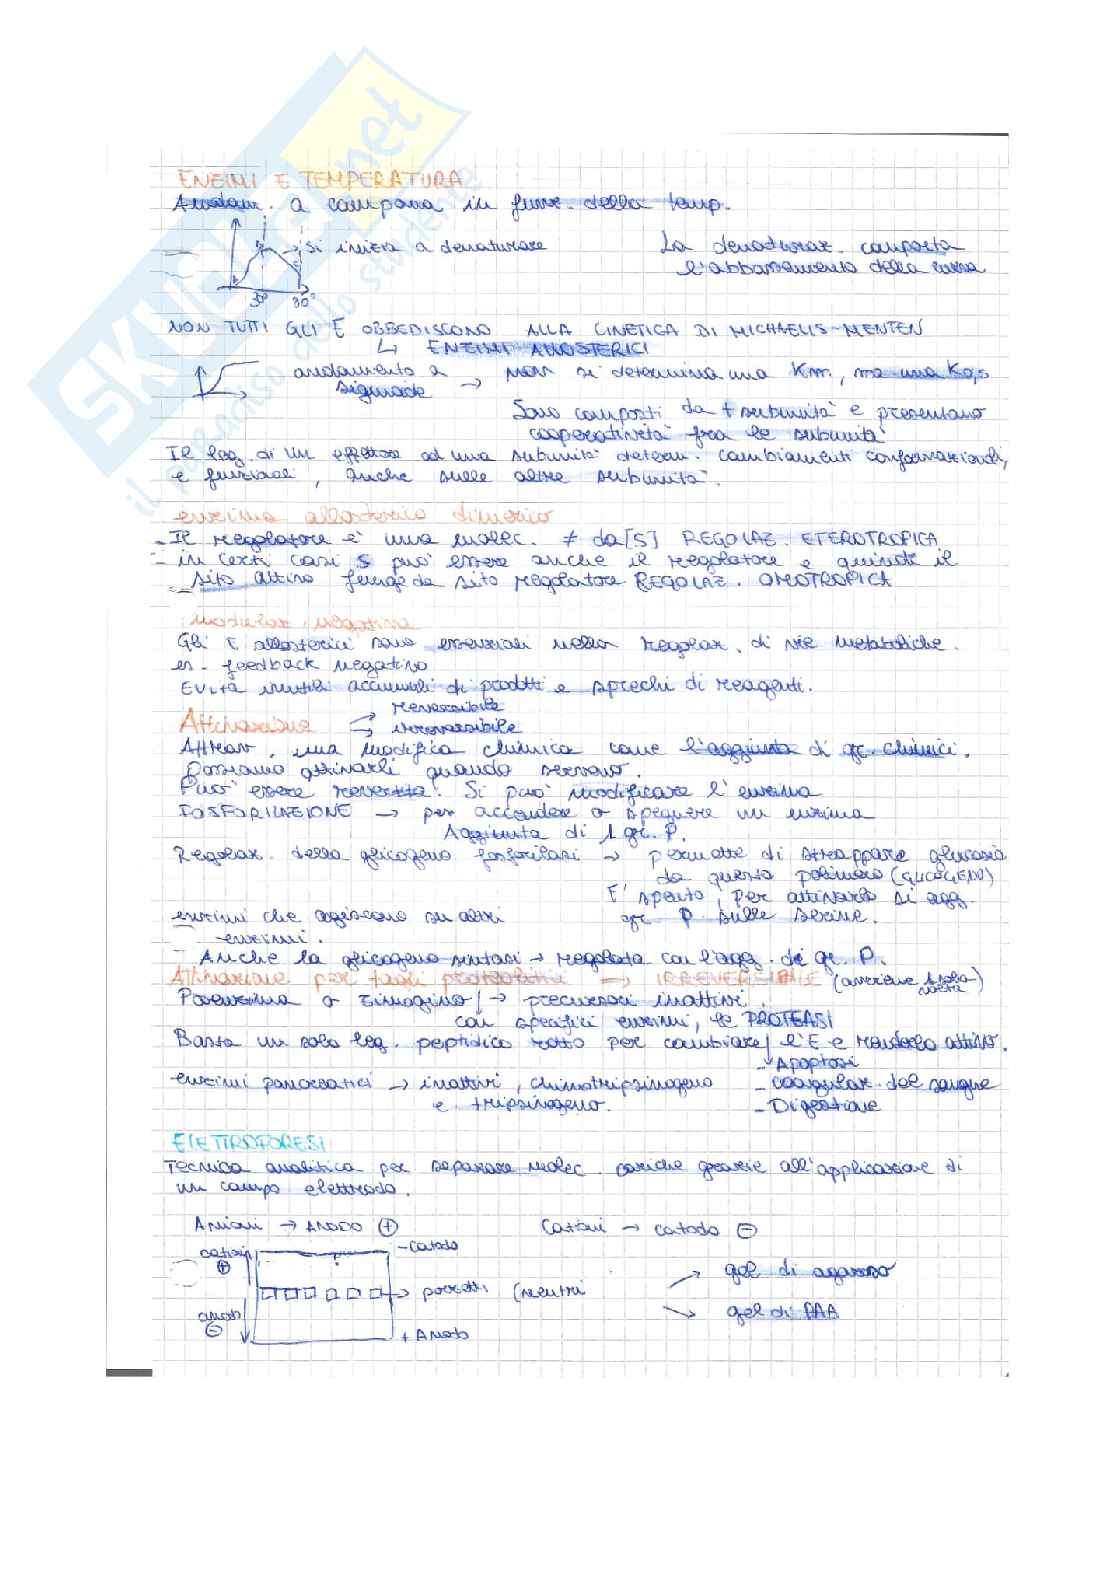 ENZIMI E TEMPERATURA
Andam. a campana in funz. della temp.
si inizia a denaturare
La denaturaz. comporta
l'abbassamento della curva
30° 80°
NON TUTTI GLI E OBBEDISCONO ALLA CINETICA DI MICHAELIS-MENTEN
↳ ENZIMI ALLOSTERICI
andamento a → non si determina una Km, ma una K0,5
sigmoide
Sono composti da + subunità e presentano
cooperatività fra le subunità
Il leg. di un effettore ad una subunità determ. cambiamenti conformazionali,
e funzionali, anche sulle altre subunità.
enzima allosterico dimerico
- Il regolatore è una molec. ≠ da [S] REGOLAZ. ETEROTROPICA
- in certi casi S può essere anche il regolatore e quindi il
sito attivo funge da sito regolatore REGOLAZ. OMOTROPICA
modulaz. negativa
Gli E allosterici sono essenziali nella regolaz. di vie metaboliche.
es - feedback negativo
Evita inutili accumuli di prodotti e sprechi di reagenti.
reversibile
Attivazione
irreversibile
Attrav. una modifica chimica come l'aggiunta di gr. chimici.
Possiamo attivarli quando servono.
Può essere reversib. Si può modificare l'enzima
FOSFORILAZIONE → per accendere o spegnere un enzima
Aggiunta di 1 gr. P.
Regolaz. della glicogeno fosforilasi → permette di strappare glucosio
da questo polimero (GLICOGENO)
E' spento, per attivarlo si agg.
enzimi che agiscono su altri gr. P sulle serine.
enzimi.
- Anche la glicogeno sintasi → regolata con l'agg. di gr. P.
Attivazione per taglio proteolitico → IRREVERSIBILE (avviene 1 sola volta)
Proenzima o zimogino → precursori inattivi.
con specifici enzimi, le PROTEASI
Basta un solo leg. peptidico rotto per cambiare l'E e renderlo attivo.
- Apoptosi
enzimi pancreatici → inattivi, chimotripsinogeno - coagulaz. del sangue
e tripsinogeno. - Digestione
ELETTROFORESI
Tecnica analitica per separare molec. cariche grazie all'applicazione di
un campo elettrico.
Anioni → ANODO (+) Cationi → catodo (-)
cationi - Catodo
+
→ pozzetti (neutri gel di agarosio
anioni gel di PAA
-
+ Anodo
SKUOLA.net
il paradiso dello studente